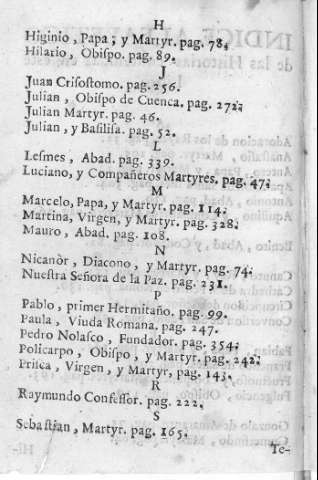 H
Higinio, Papa, y Martyr. pag. 78.
Hilario, Obispo. pag. 89.
J
Juan Crisostomo. pag. 256.
Julian, Obispo de Cuenca. pag. 272.
Julian Martyr. pag. 46.
Julian, y Basilisa. pag. 52.
L
Lesmes, Abad. pag. 339.
Luciano, y Compañeros Martyres. pag. 47.
M
Marcelo, Papa, y Martyr. pag. 114.
Martina, Virgen, y Martyr. pag. 328.
Mauro, Abad. pag. 108.
N
Nicanòr, Diacono, y Martyr. pag. 74.
Nuestra Señora de la Paz. pag. 231.
P
Pablo, primer Hermitaño. pag. 99.
Paula, Viuda Romana. pag. 247.
Pedro Nolasco, Fundador. pag. 354.
Policarpo, Obispo, y Martyr. pag. 242.
Prisca, Virgen, y Martyr. pag. 143.
R
Raymundo Confessor. pag. 222.
S
Sebastian, Martyr. pag. 165.
Te-